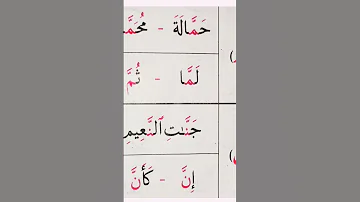 حَمَّالَةَ - مُحَمَّ
لَمَّا - ثُمَّ
جَنَّـٰتِ ٱلنَّعِيمِ
إِنَّ - كَأَنَّ